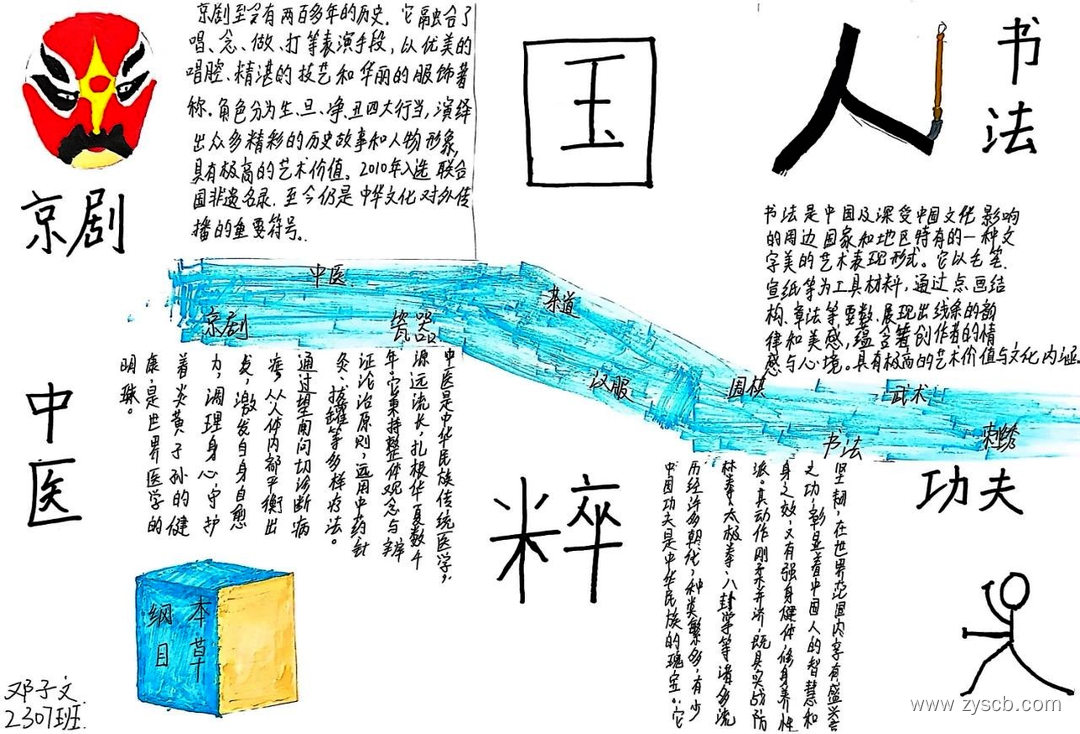 京剧
京剧至今有两百多年的历史.它融合了
唱、念、做、打等表演手段,以优美的
唱腔、精湛的技艺和华丽的服饰著
称.角色分为生、旦、净、丑四大行当,演绎
出众多精彩的历史故事和人物形象,
具有极高的艺术价值。2010年入选联合
国非遗名录.至今仍是中华文化对外传
播的重要符号。
国
人
书法
书法是中国及深受中国文化影响
的周边国家和地区特有的一种文
字美的艺术表现形式。它以毛笔.
宣纸等为工具材料,通过点画结
构、章法等要数,展现出线条的韵
律和美感,蕴含着创作者的情
感与心境。具有极高的艺术价值与文化内涵
中医
京剧
瓷器
茶道
汉服
围棋
书法
武术
刺绣
中医
中医是中华民族传统医学,
源远流长,扎根华夏数千
年,它秉持整体观念与辩
证论治原则,运用中药针
灸、拔罐等多样疗法。
通过望闻问切诊断病
疼,从人体内部平衡出
发,激发自身自愈
力,调理身心,守护
着炎黄子孙的健
康,是世界医学的
明珠。
粹
功夫
中国功夫是中华民族的瑰宝。它
历经许多朝代,种类繁多,有少
林拳、太极拳、八卦掌等诸多流
派。其动作刚柔并济,既具实战防
身之效,又有强身健体修身养性
之功,彰显着中国人的智慧和
坚韧,在世界范围内享有盛誉
本草
纲目
邓子文
2307班
www.zyscb.com